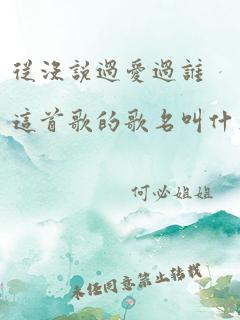 從沒說過愛過誰
這首歌的歌名叫什
何必姐姐
未经同意禁止转载